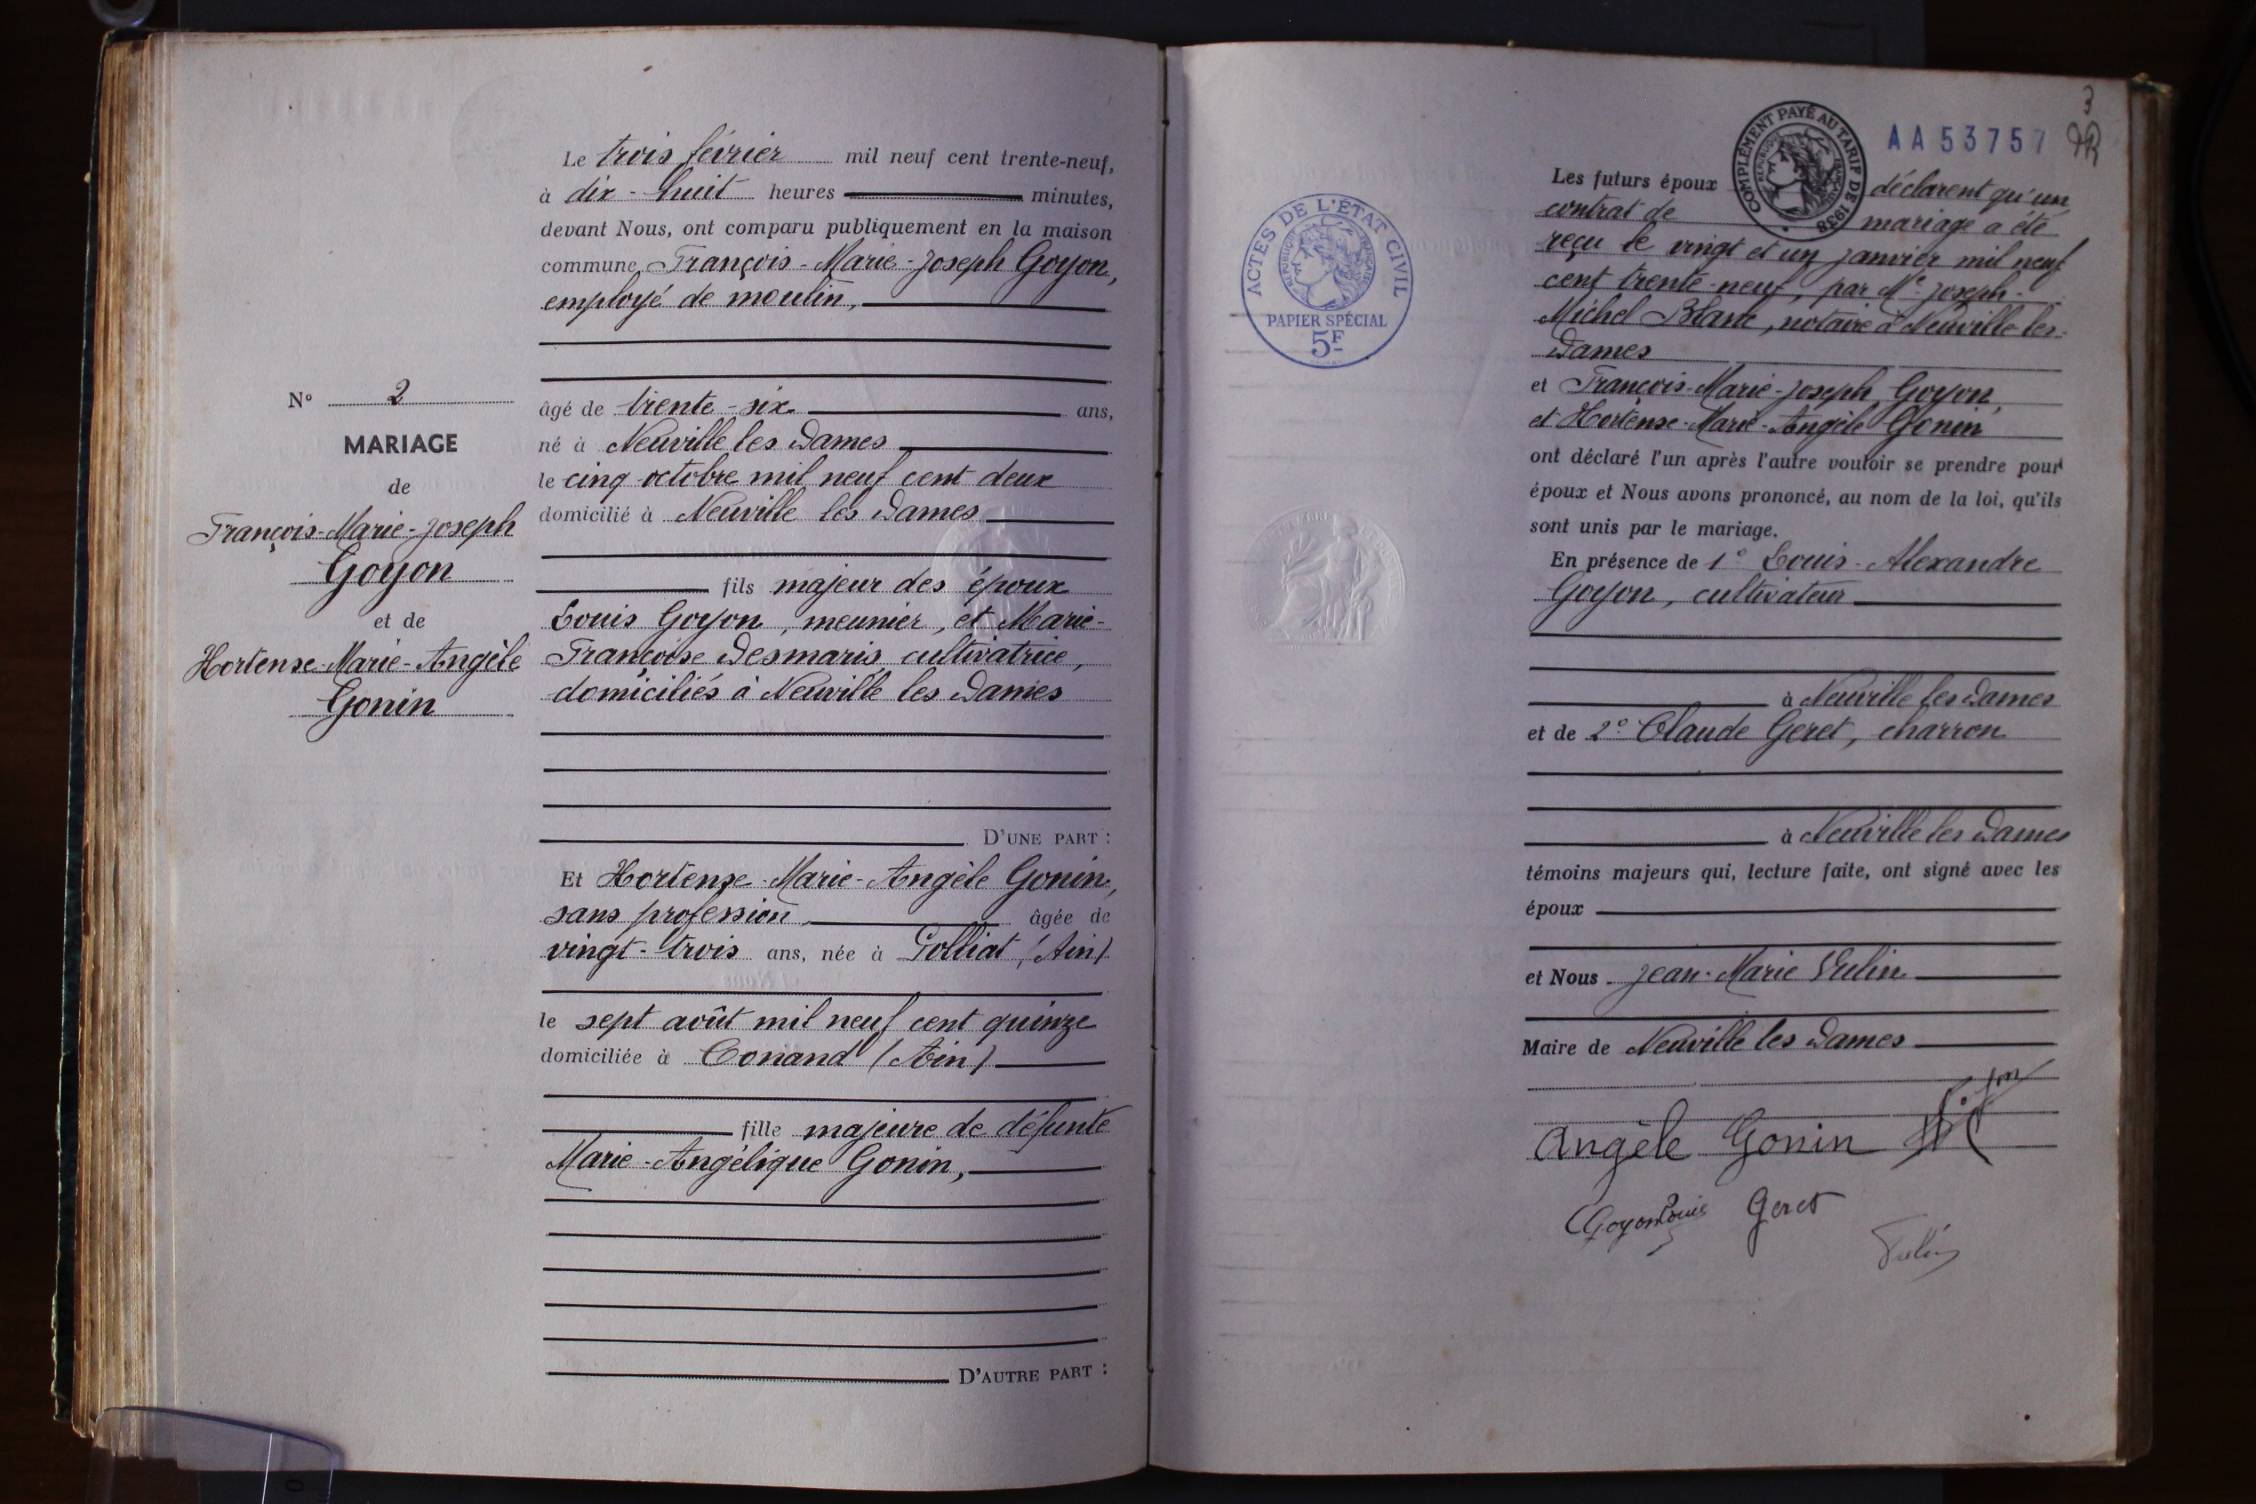 N° 2
MARIAGE
de
François-Marie-Joseph
Goyon
et de
Hortense-Marie-Angèle
Gonin
Le trois février mil neuf cent trente-neuf,
à dix-huit heures minutes,
devant Nous, ont comparu publiquement en la maison
commune François-Marie-Joseph Goyon,
employé de moulin,
âgé de trente-six ans,
né à Neuville les Dames
le cinq octobre mil neuf cent deux
domicilié à Neuville les Dames
fils majeur des époux
Louis Goyon, meunier, et Marie-
Françoise Desmaris, cultivatrice,
domiciliés à Neuville les Dames
D'UNE PART :
Et Hortense-Marie-Angèle Gonin,
sans profession, âgée de
vingt-trois ans, née à Polliat, (Ain)
le sept août mil neuf cent quinze
domiciliée à Conand (Ain)
fille majeure de défunte
Marie-Angélique Gonin,
D'AUTRE PART :
3
AA53757
COMPLÉMENT PAYÉ AU TARIF DE 1938
RÉPUBLIQUE FRANÇAISE
ACTES DE L'ÉTAT CIVIL
RÉPUBLIQUE FRANÇAISE
PAPIER SPÉCIAL
5F
Les futurs époux déclarent qu'un
contrat de mariage a été
reçu le vingt et un janvier mil neuf
cent trente-neuf, par Me Joseph-
Michel Blanc, notaire à Neuville-les-
Dames
et François-Marie-Joseph Goyon,
et Hortense-Marie-Angèle Gonin
ont déclaré l'un après l'autre vouloir se prendre pour
époux et Nous avons prononcé, au nom de la loi, qu'ils
sont unis par le mariage.
En présence de 1° Louis-Alexandre
Goyon, cultivateur
à Neuville les Dames
et de 2° Claude Geret, charron
à Neuville les Dames
témoins majeurs qui, lecture faite, ont signé avec les
époux
et Nous Jean-Marie Vulin
Maire de Neuville les Dames
Angèle Gonin
Goyon Louis Geret
Vulin